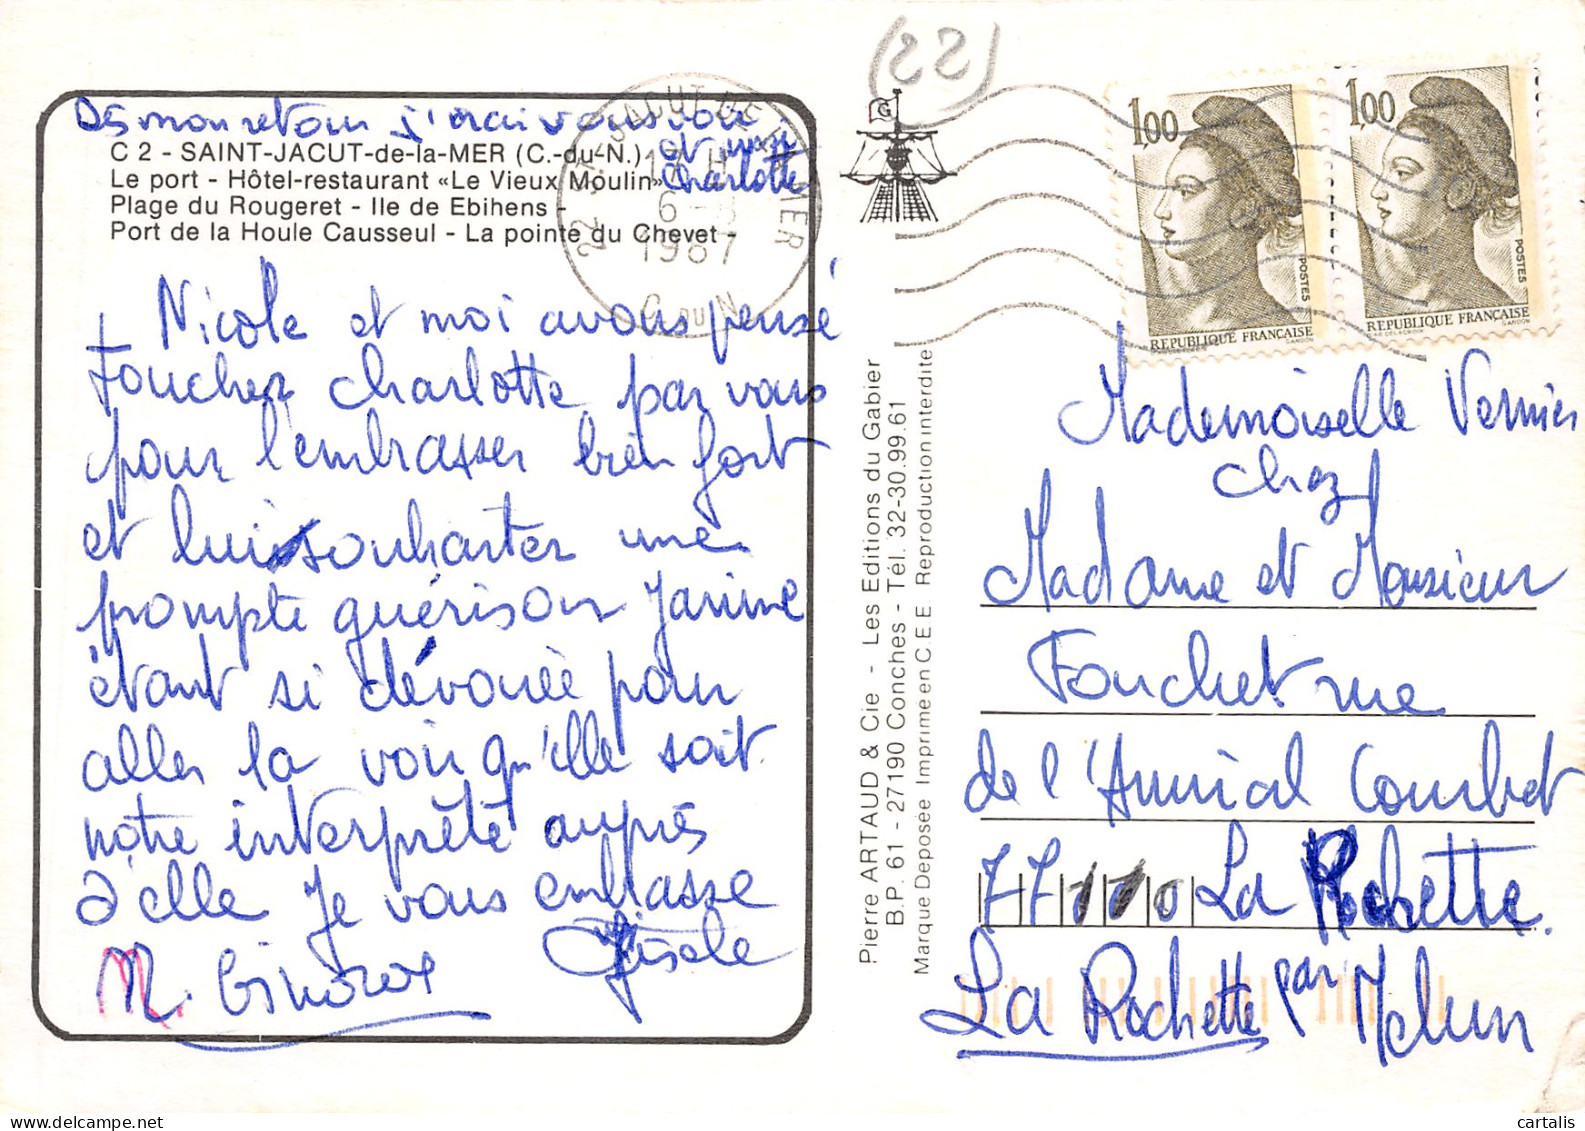 Dès mon retour j'irai vous voir
et mon
Charlotte
C 2 - SAINT-JACUT-de-la-MER (C.-du-N.)
Le port - Hôtel-restaurant «Le Vieux Moulin»
Plage du Rougeret - Ile de Ebihens -
Port de la Houle Causseul - La pointe du Chevet -
Nicole et moi avons pensé
toucher Charlotte par vous
pour l'embrasser bien fort
et lui souhaiter une
prompte guérison Janine
étant si dévouée pour
aller la voir qu'elle soit
notre interprête auprès
d'elle Je vous embrasse
Gisèle
N.
22 ST-JACUT DE LA MER
17 H
6 - 8
1987
C. DU N.
(22)
1,00
POSTES
REPUBLIQUE FRANÇAISE
GANDON
1,00
POSTES
REPUBLIQUE FRANÇAISE
GANDON
Pierre ARTAUD & Cie - Les Editions du Gabier
B.P. 61 - 27190 Conches - Tél. 32-30.99.61
Marque Deposée Imprime en C E E Reproduction interdite
Mademoiselle Vernier
chez
Madame et Monsieur
Fouchet rue
de l'Amiral Courbet
77000 La Rochette
La Rochette par Melun
cartalis